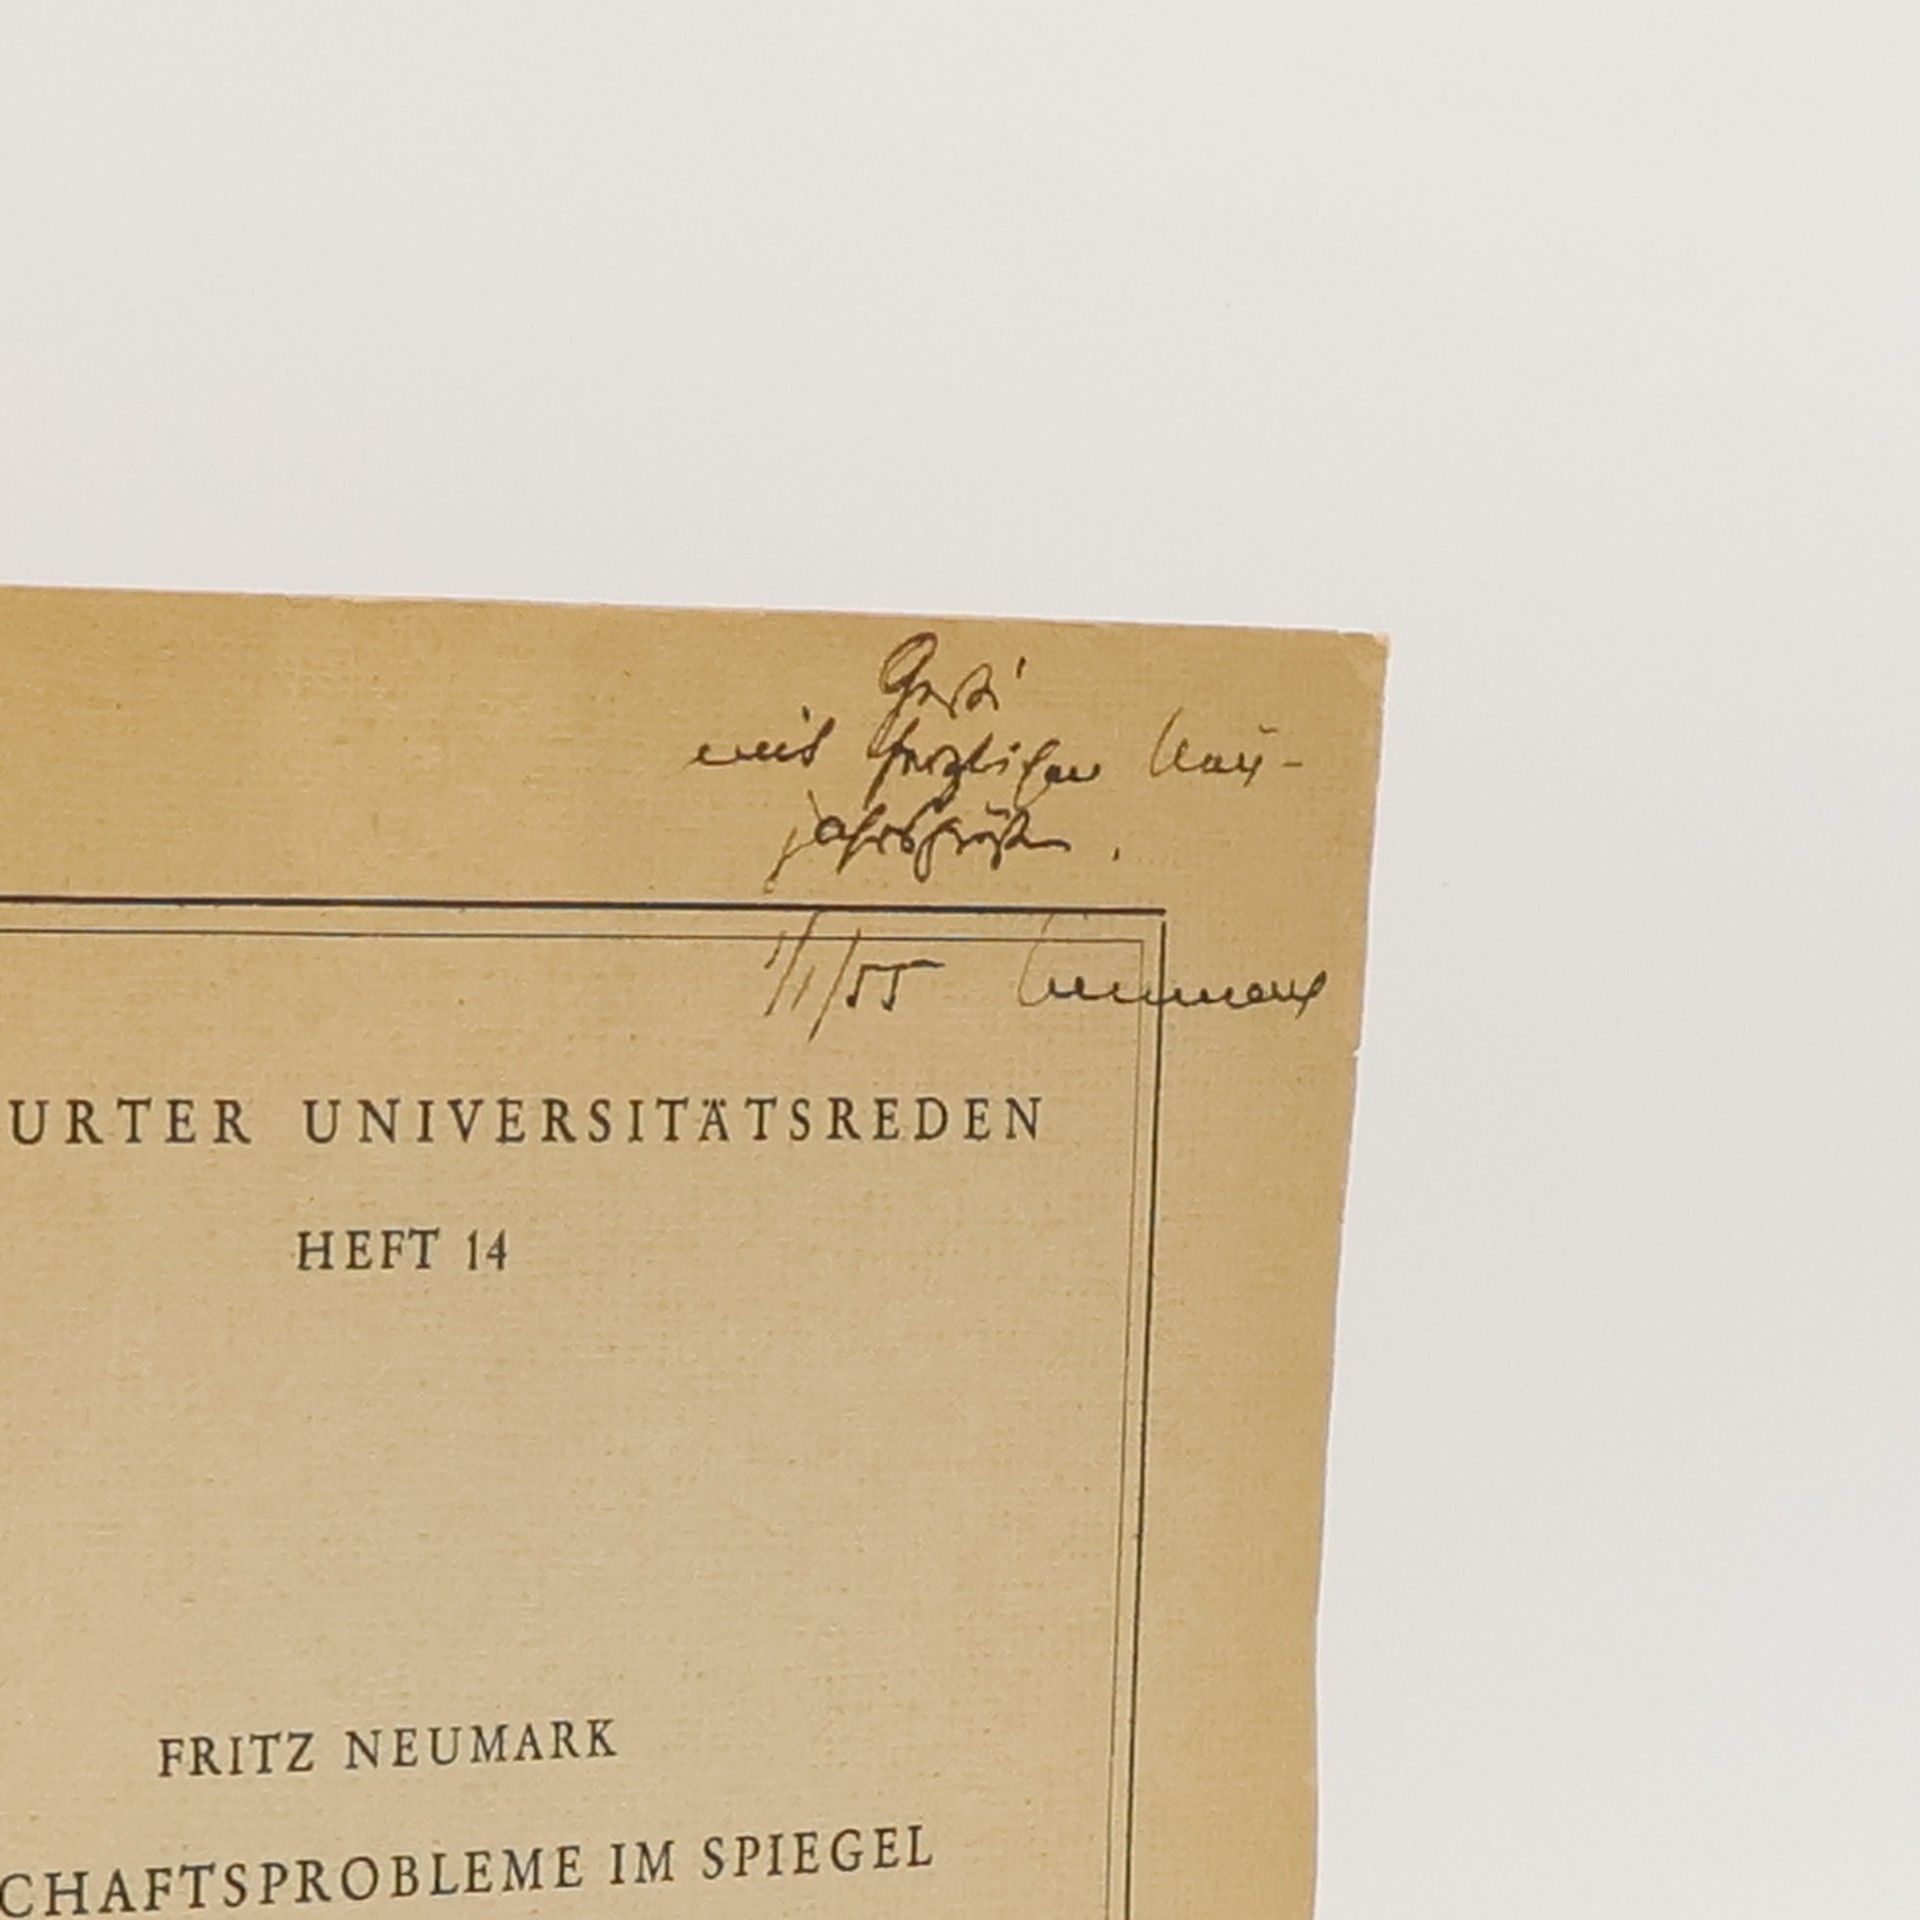 mit herzlichen Neu-
jahrsgrüßen.
1/1/55 Neumark
URTER UNIVERSITÄTSREDEN
HEFT 14
FRITZ NEUMARK
CHAFTSPROBLEME IM SPIEGEL